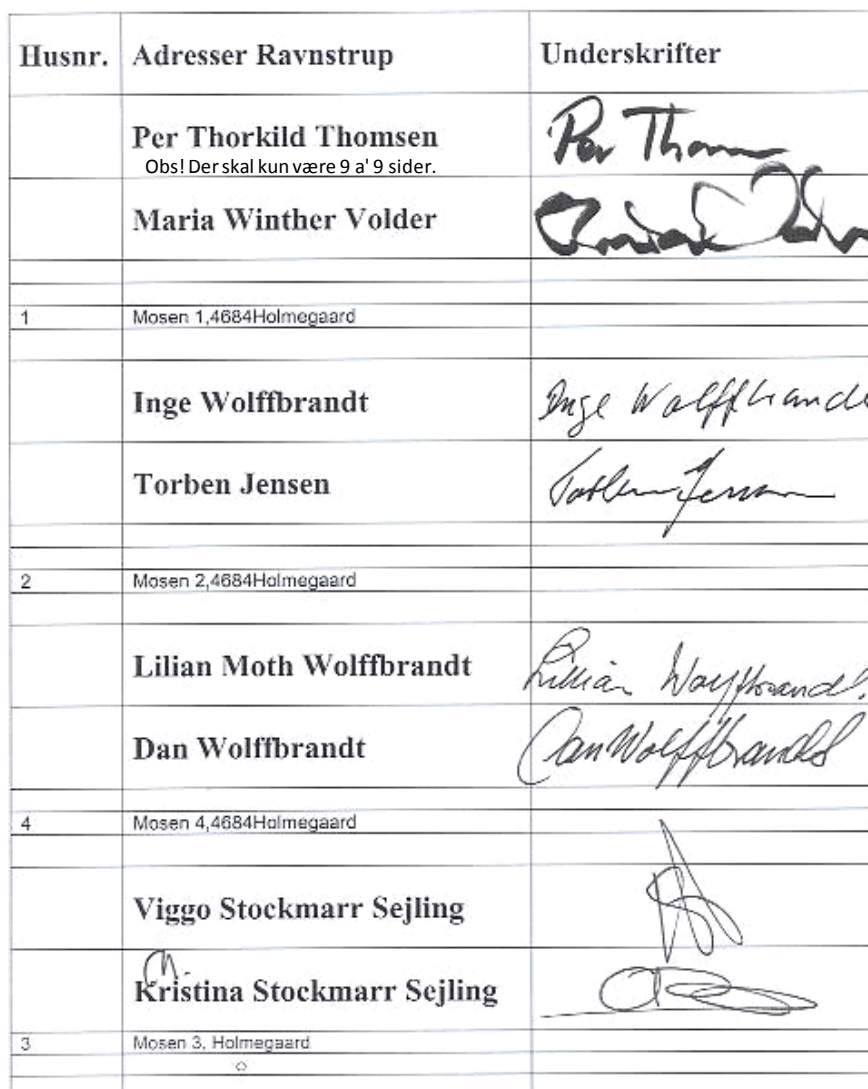 Husnr. Adresser Ravnstrup Underskrifter
Per Thorkild Thomsen Per Thom
Obs! Der skal kun være 9 a' 9 sider.
Maria Winther Volder
1 Mosen 1,4684Holmegaard
Inge Wolffbrandt Inge Wolffbrandt
Torben Jensen Torben Jensen
2 Mosen 2,4684Holmegaard
Lilian Moth Wolffbrandt Lillian Wolffbrandt
Dan Wolffbrandt Dan Wolffbrandt
4 Mosen 4,4684Holmegaard
Viggo Stockmarr Sejling
Kristina Stockmarr Sejling
3 Mosen 3, Holmegaard